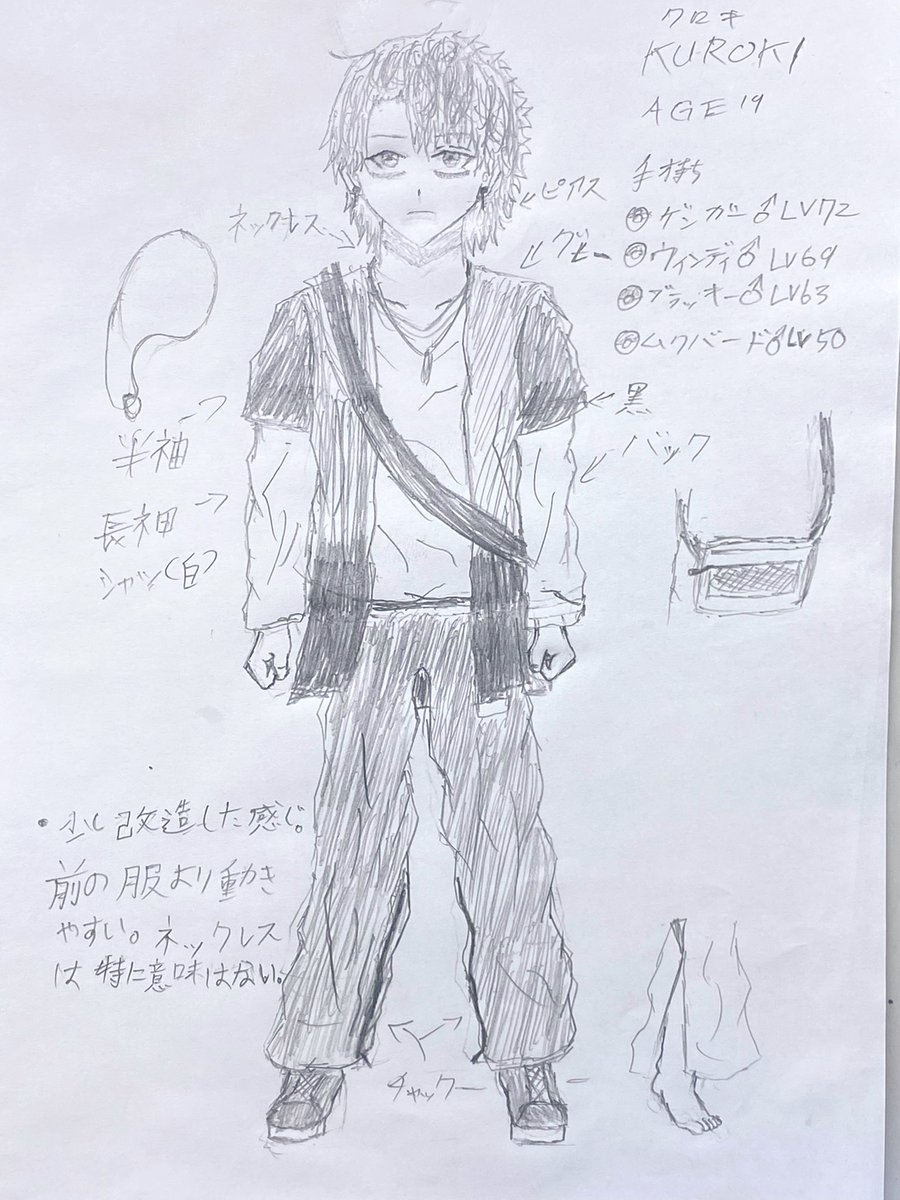 クロキ
KUROKI
AGE 19
手持ち
ゲンガー♂LV72
ウィンディ♂LV69
ブラッキー♂LV63
ムクバード♂LV50
ピアス
ネックレス
黒
バック
半袖
長袖
シャツ(白)
・少し改造した感じ。
前の服より動き
やすい。ネックレス
は特に意味はない。
チャック